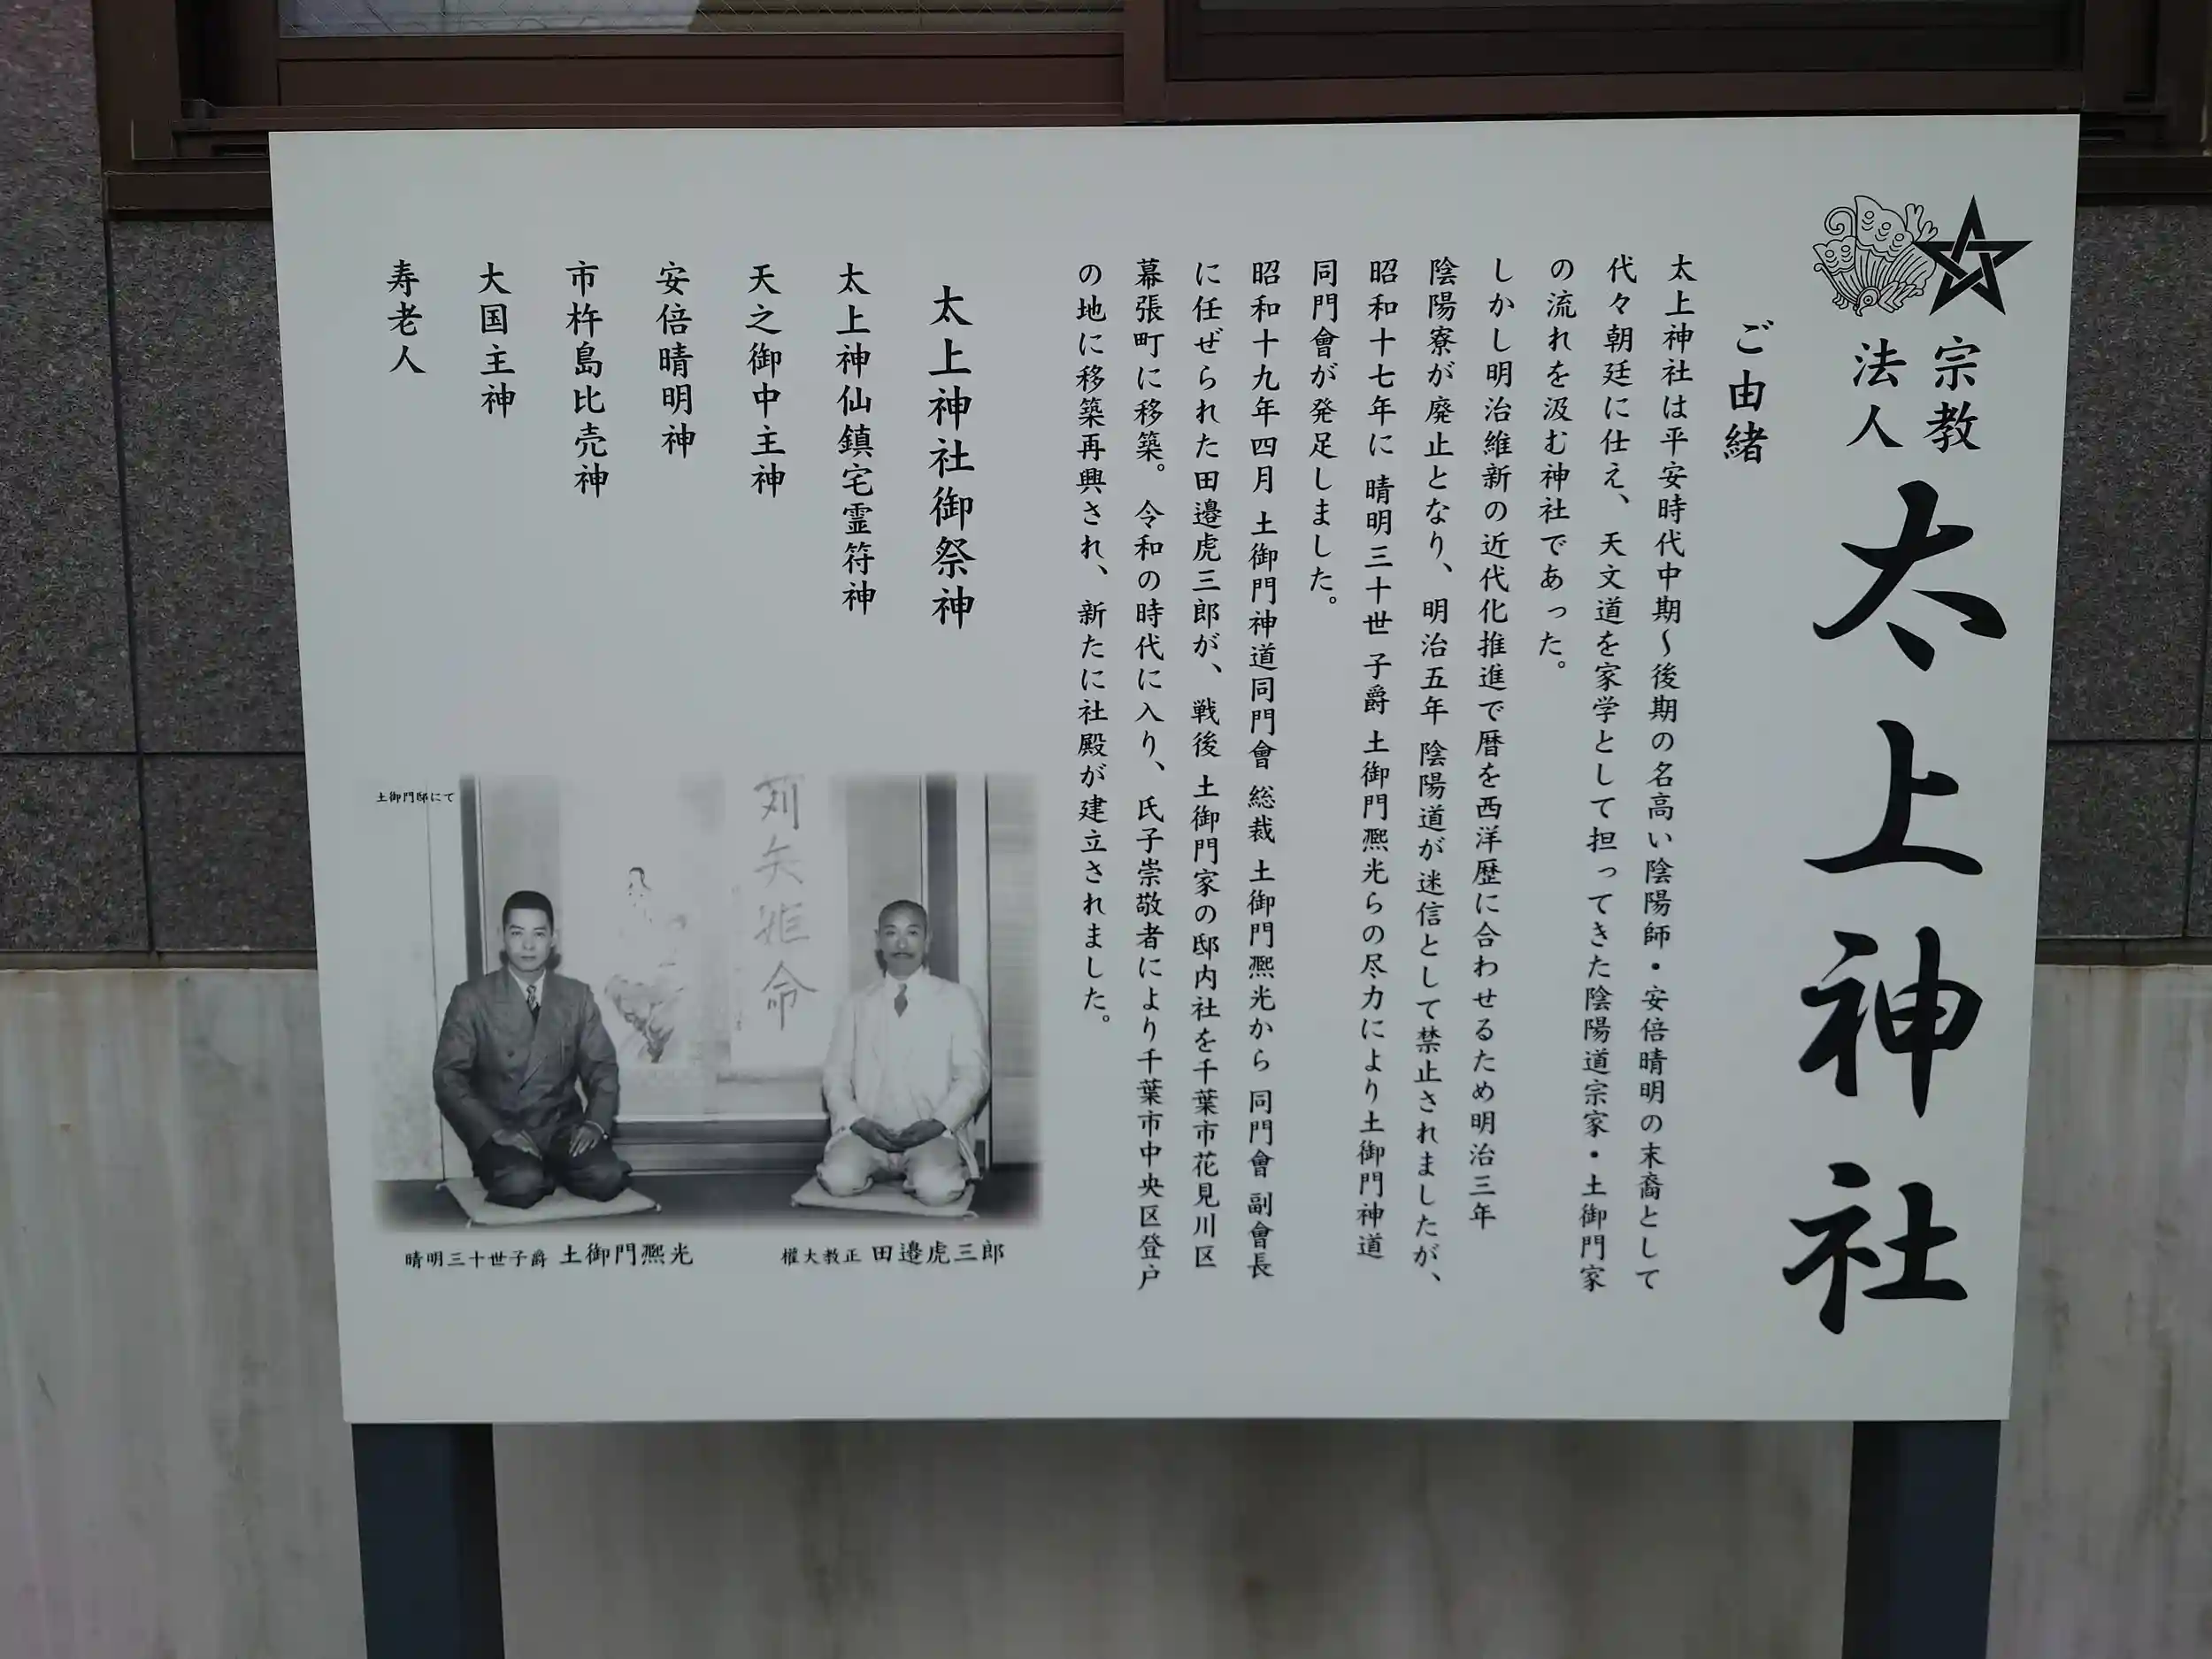 宗教
法人
太上神社
ご由緒
太上神社は平安時代中期～後期の名高い陰陽師・安倍晴明の末裔として
代々朝廷に仕え、天文道を家学として担ってきた陰陽道宗家・土御門家
の流れを汲む神社であった。
しかし明治維新の近代化推進で暦を西洋歴に合わせるため明治三年
陰陽寮が廃止となり、明治五年 陰陽道が迷信として禁止されましたが、
昭和十七年に 晴明三十世 子爵 土御門凞光らの尽力により土御門神道
同門會が発足しました。
昭和十九年四月 土御門神道同門會 総裁 土御門凞光から 同門會 副會長
に任ぜられた田邉虎三郎が、戦後 土御門家の邸内社を千葉市花見川区
幕張町に移築。令和の時代に入り、氏子崇敬者により千葉市中央区登戸
の地に移築再興され、新たに社殿が建立されました。
太上神社御祭神
太上神仙鎮宅霊符神
天之御中主神
安倍晴明神
市杵島比売神
大国主神
寿老人
土御門邸にて
權大教正 田邉虎三郎
晴明三十世子爵 土御門凞光